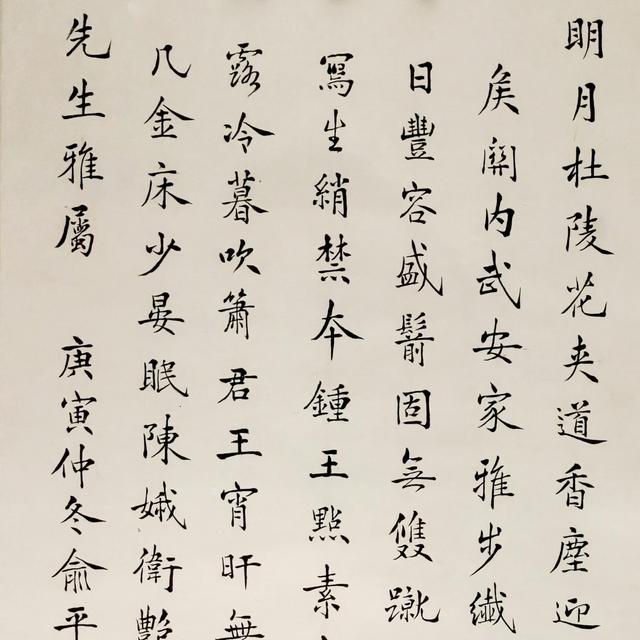 明月杜陵花夾道香塵迎
矦關内武安家雅步纖
日豐容盛鬋固無雙蹴
寫生綃禁本鍾王點素
露冷暮吹簫君王宵旰無
几金床少晏眠陳娥衛艷
先生雅屬 庚寅仲冬俞平